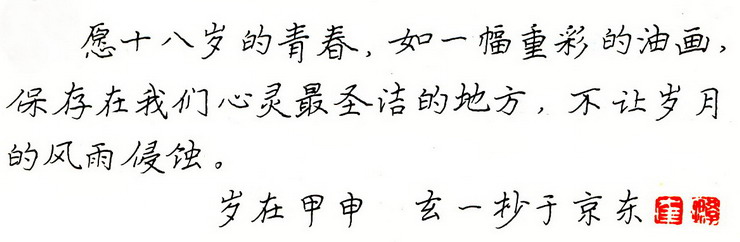 愿十八岁的青春，如一幅重彩的油画，
保存在我们心灵最圣洁的地方，不让岁月
的风雨侵蚀。
岁在甲申 玄一抄于京东